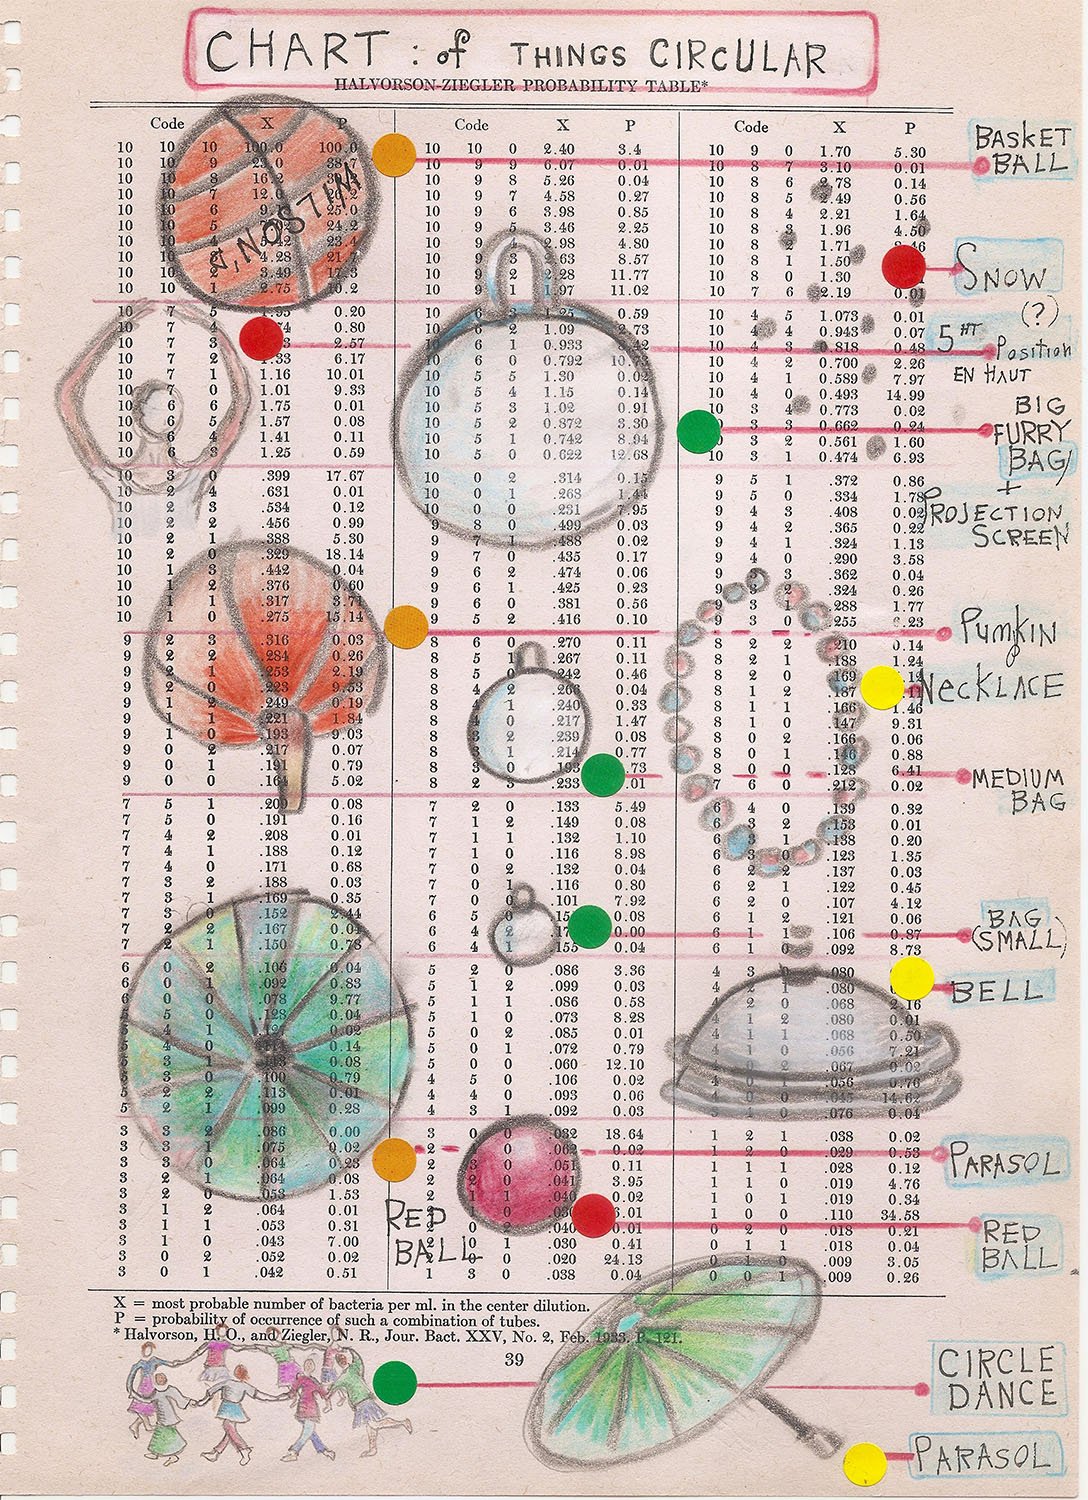 CHART : of THINGS CIRCULAR
HALVORSON-ZIEGLER PROBABILITY TABLE*
Code X P
10 10 10 100.0 100.0
10 10 9 38.7
10 10 8 16.2
10 10 7 12.0
10 10 6 25.0
10 10 5 24.2
10 10 4 23.4
10 10 3 4.28 21.7
10 10 2 3.49 17.3
10 10 1 2.75 10.2
10 7 5 1.95 0.20
10 7 4 0.80
10 7 3 2.57
10 7 2 1.33 6.17
10 7 1 1.16 10.01
10 7 0 1.01 9.33
10 6 6 1.75 0.01
10 6 5 1.57 0.08
10 6 4 1.41 0.11
10 6 3 1.25 0.59
10 3 0 .399 17.67
10 2 4 .631 0.01
10 2 3 .534 0.12
10 2 2 .456 0.99
10 2 1 .388 5.30
10 2 0 .329 18.14
10 1 3 .442 0.04
10 1 2 .376 0.60
10 1 1 .317 3.71
10 1 0 .275 15.14
9 2 3 .316 0.03
9 2 2 .284 0.26
9 2 1 .253 2.19
9 2 0 .223 9.53
9 1 2 .249 0.19
9 1 1 .221 1.84
9 1 0 .193 9.03
9 0 2 .217 0.07
9 0 1 .191 0.79
9 0 0 .164 5.02
7 5 1 .209 0.08
7 5 0 .191 0.16
7 4 2 .208 0.01
7 4 1 .188 0.12
7 4 0 .171 0.68
7 3 2 .188 0.03
7 3 1 .169 0.35
7 3 0 .152 2.44
7 2 2 .167 0.04
7 2 1 .150 0.78
6 0 2 .106 0.04
6 0 1 .092 0.83
6 0 0 .078 9.77
5 .128 0.04
5 4 1 0.02
5 4 0 0.14
5 3 1 0.08
5 3 0 .100 0.79
5 2 2 .113 0.01
5 2 1 .099 0.28
3 3 2 .086 0.00
3 3 1 .075 0.02
3 3 0 .064 0.23
3 2 1 .064 0.08
3 2 0 .053 1.53
3 1 2 .064 0.01
3 1 1 .053 0.31
3 1 0 .043 7.00
3 0 2 .052 0.02
3 0 1 .042 0.51
Code X P
10 10 0 2.40 3.4
10 9 9 6.07 0.01
10 9 8 5.26 0.04
10 9 7 4.58 0.27
10 9 6 3.98 0.85
10 9 5 3.46 2.25
10 9 4 2.98 4.80
10 9 3 8.57
10 9 2 2.28 11.77
10 9 1 1.97 11.02
10 6 3 1.25 0.59
10 6 2 1.09 2.73
10 6 1 0.933
10 6 0 0.792 10.73
10 5 5 1.30 0.02
10 5 4 1.15 0.14
10 5 3 1.02 0.91
10 5 2 0.872 3.30
10 5 1 0.742 8.94
10 5 0 0.622 12.68
10 0 2 .314 0.15
10 0 1 .268 1.44
10 0 0 .231 7.95
9 8 0 .499 0.03
9 7 1 .488 0.02
9 7 0 .435 0.17
9 6 2 .474 0.06
9 6 1 .425 0.23
9 6 0 .381 0.56
9 5 2 .416 0.10
8 6 0 .270 0.11
8 5 1 .267 0.11
8 5 0 .242 0.46
8 4 2 .266 0.04
8 4 1 .240 0.33
8 4 0 .217 1.47
8 3 2 .239 0.08
8 3 1 .214 0.77
8 3 0 .193
8 2 3 .233 .01
7 2 0 .133 5.49
7 1 2 .149 0.08
7 1 1 .132 1.10
7 1 0 .116 8.98
7 0 2 .132 0.04
7 0 1 .116 0.80
7 0 0 .101 7.92
6 5 0 0.08
6 4 2 0.00
6 4 1 .155 0.04
5 2 0 .086 3.36
5 1 2 .099 0.03
5 1 1 .086 0.58
5 1 0 .073 8.28
5 0 2 .085 0.01
5 0 1 .072 0.79
5 0 0 .060 12.10
4 5 0 .106 0.02
4 4 0 .093 0.06
4 3 1 .092 0.03
3 0 0 .032 18.64
2 .062 0.02
2 .051 0.11
2 .041 3.95
2 1 1 .040 0.02
2 1 0 6.01
2 0 2 .040 0.01
2 0 1 .030 0.41
2 0 0 .020 24.13
1 3 0 .038 0.04
Code X P
10 9 0 1.70 5.30
10 8 7 3.10 0.01
10 8 6 2.78 0.14
10 8 5 2.49 0.56
10 8 4 2.21 1.64
10 8 3 1.96 4.50
10 8 2 1.71
10 8 1 1.50
10 8 0 1.30
10 7 6 2.19 0.01
10 4 5 1.073 0.01
10 4 4 0.943 0.07
10 4 3 0.818 0.48
10 4 2 0.700 2.26
10 4 1 0.589 7.97
10 4 0 0.493 14.99
10 3 4 0.773 0.02
10 3 3 0.662 0.24
10 3 2 0.561 1.60
10 3 1 0.474 6.93
9 5 1 .372 0.86
9 5 0 .334 1.78
9 4 3 .408 0.02
9 4 2 .365 0.22
9 4 1 .324 1.13
9 4 0 .290 3.58
9 3 3 .362 0.04
9 3 2 .324 0.26
9 3 1 .288 1.77
9 3 0 .255 6.23
8 2 2 .210 0.14
8 2 1 .188 1.24
8 2 0 .169
8 1 2 .187
8 1 1 .166 1.46
8 1 0 .147 9.31
8 0 2 .166 0.06
8 0 1 .146 0.88
8 0 0 .128 6.41
7 6 0 .212 0.02
6 4 0 .139 0.32
6 3 2 .153 0.01
6 3 1 .138 0.20
6 3 0 .123 1.35
6 2 2 .137 0.03
6 2 1 .122 0.45
6 2 0 .107 4.12
6 1 2 .121 0.06
6 1 1 .106 0.87
6 1 0 .092 8.73
4 3 0 .080
4 2 1 .080
4 2 0 .068 2.16
4 1 2 .080 0.01
4 1 1 .068 0.50
4 1 0 .056 7.21
4 0 2 .067 0.02
4 0 1 .056 0.76
4 0 0 .045 14.62
3 4 0 .076 0.04
1 2 1 .038 0.02
1 2 0 .029 0.53
1 1 2 .028 0.12
1 1 1 .019 4.76
1 0 1 .019 0.34
1 0 0 .110 34.58
0 2 0 .018 0.21
0 1 1 .018 0.04
0 1 0 .009 3.05
0 0 1 .009 0.26
WILSON
RED
BALL
BASKET
BALL
SNOW
(?)
5 HT Position
EN HAUT
BIG
FURRY
BAG
+
PROJECTION
SCREEN
PUMPKIN
NECKLACE
MEDIUM
BAG
BAG
(SMALL)
BELL
PARASOL
RED
BALL
X = most probable number of bacteria per ml. in the center dilution.
P = probability of occurrence of such a combination of tubes.
* Halvorson, H. O., and Ziegler, N. R., Jour. Bact. XXV, No. 2, Feb. 1933. P. 121.
39
CIRCLE
DANCE
PARASOL